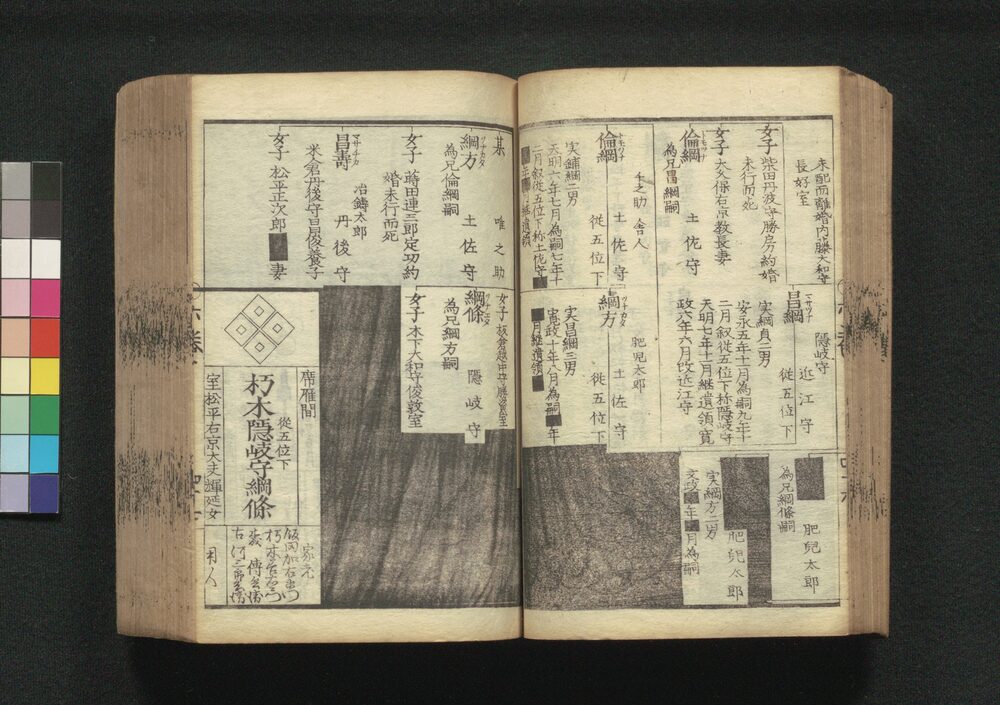 未配而離婚内藤大和守
長好室
女子 柴田丹波守勝房約婚
未行而死
女子 大久保右京教長妻
倫綱 トモツナ 土佐守
為兄昌綱嗣
千之助 舎人
倫綱 トモツナ 土佐守
従五位下
実鋪綱二男
天明六年七月為嗣七年十
二月叙従五位下称土佐守
継遺領
昌綱 マサツナ 隠岐守
近江守
従五位下
実綱貞二男
安永五年十月為嗣九年十
二月叙従五位下称隠岐守
天明七年十月継遺領寛
政六年六月改近江守
綱方 ツナカタ 肥児太郎
土佐守
従五位下
実昌綱三男
寛政十年八月為嗣 年
月継遺領
肥児太郎
為兄綱條嗣
肥児太郎
実綱方二男
文政 年 月為嗣
某 唯之助
綱方 ツナカタ 土佐守
為兄倫綱嗣
女子 蒔田連三郎定功約
婚未行而死
昌壽 マサナカ 冶鑄太郎
丹後守
米倉丹後守昌俊養子
女子 松平正次郎 妻
女子 板倉越中守勝資室
綱條 ツナエダ 隠岐守
為兄綱方嗣
女子 木下大和守俊敦室
席雁間
従五位下
朽木隠岐守綱條
室松平右京大夫輝延女
家老
飯田加右衛門
用人
六巻